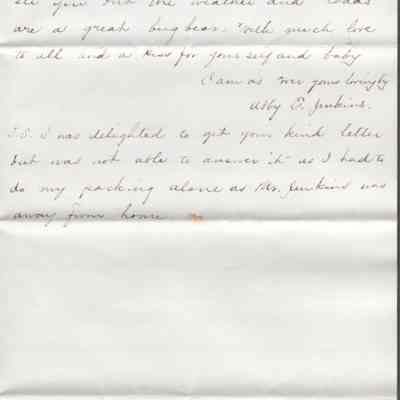 see you but the weather and roads
are a great bugbear. With much love
to all and a kiss for yourself and baby
I am as ever yours lovingly
Abby E. Jenkins.
P.S. I was delighted to get your kind letter
but was not able to answer it as I had to
do my packing alone as Mr. Jenkins was
away from home